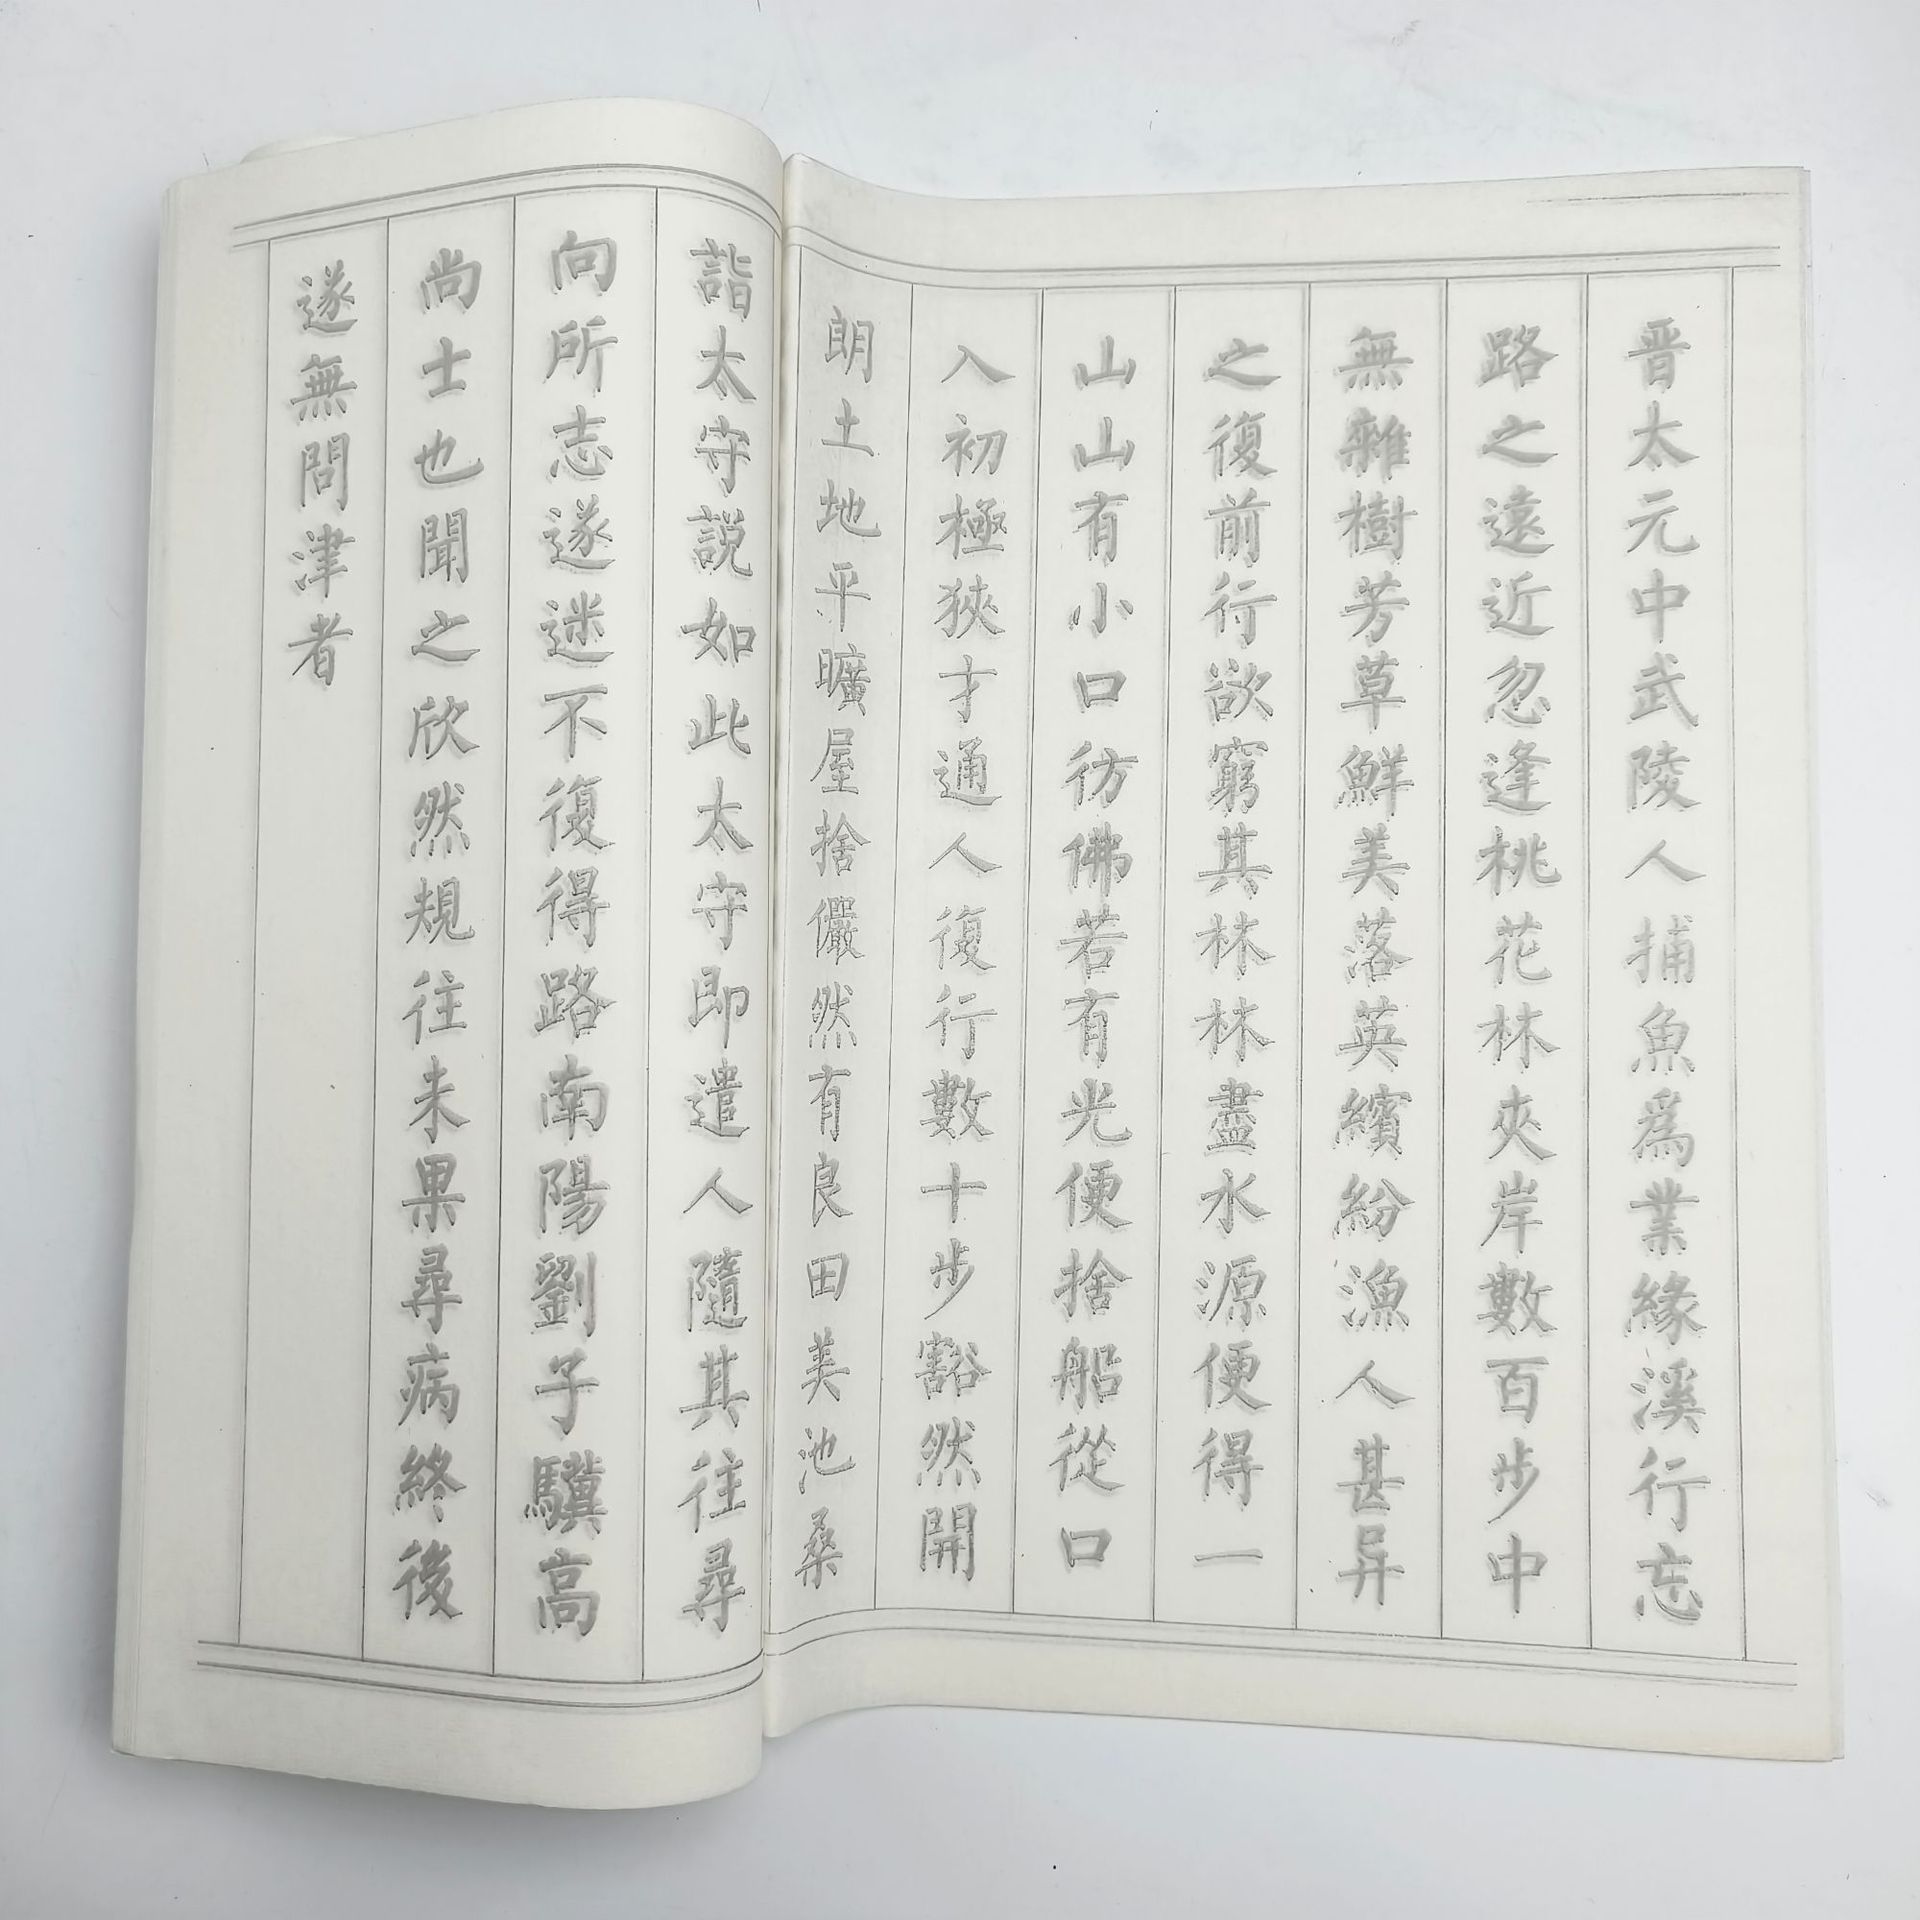 晋太元中武陵人捕魚爲業緣溪行忘
路之遠近忽逢桃花林夾岸數百步中
無雜樹芳草鮮美落英繽紛漁人甚异
之復前行欲窮其林林盡水源便得一
山山有小口彷佛若有光便捨船從口
入初極狹才通人復行數十步豁然開
朗土地平曠屋捨儼然有良田美池桑
詣太守説如此太守即遣人隨其往尋
向所志遂迷不復得路南陽劉子驥高
尚士也聞之欣然規往未果尋病終後
遂無問津者